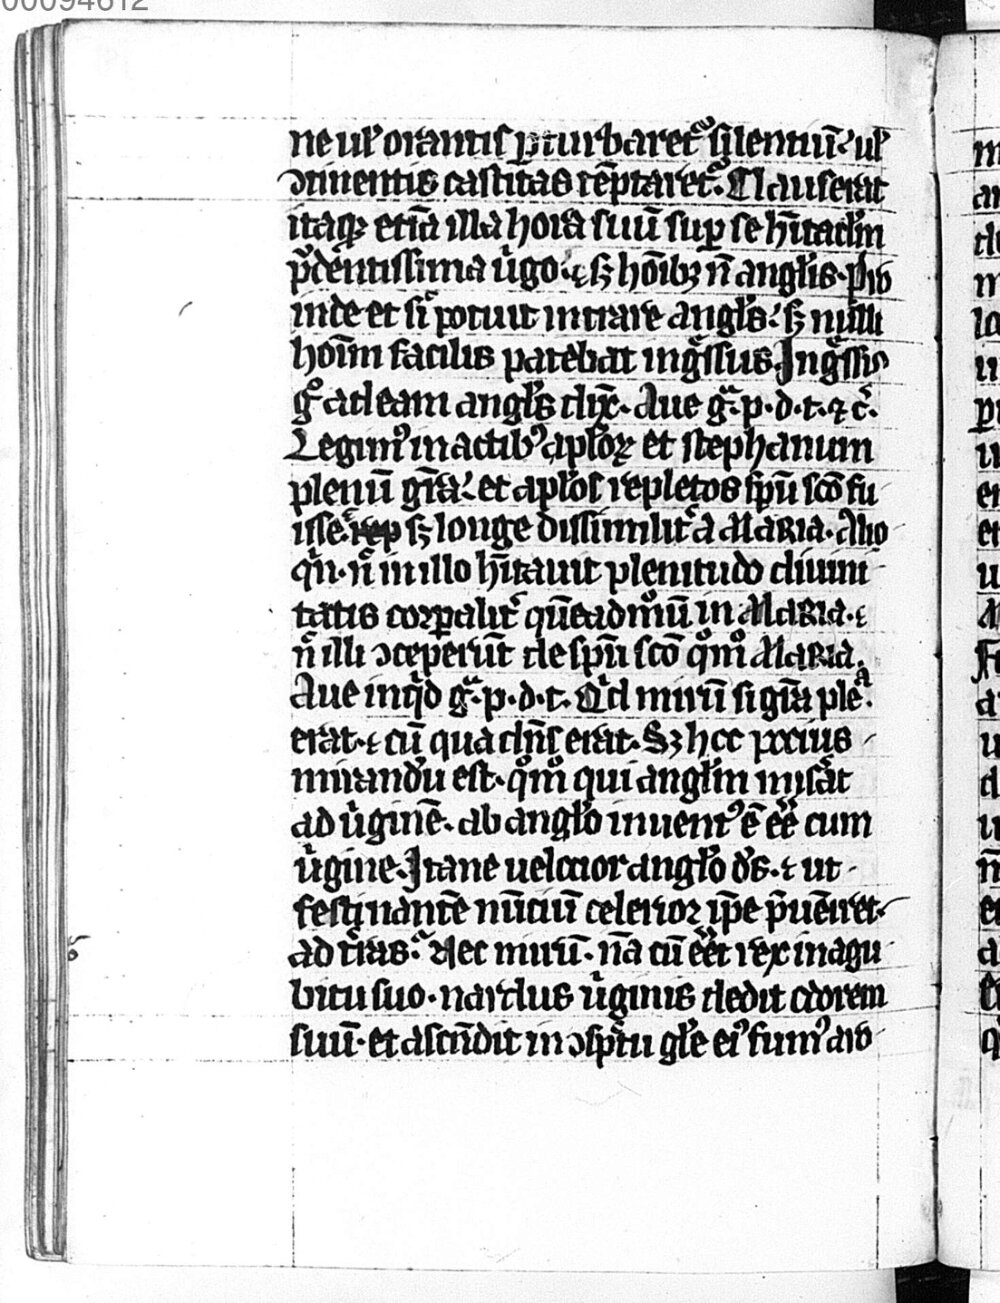 00094612
ne ul᷑ orantis ꝑturbaret᷑ silentiū· ul᷑
ꝯtinentis castitas tēptaret᷑. Clauserat
itaqꝫ etiā illa hora suū suꝑ se hītaclm̄
p̄dentissima v̾go· ⁊ sꝫ hōibꝫ n̄ angl̓is. pro
inde et si potuit intrare angl̓s· sꝫ nulli
hoīm facilis patebat ing̾ssus. Ing̾ssus
gͦ ad eam angl̓s dix̄. Aue gᷓ. p. d. t. ⁊ c̄.
Legim᷒ in actib᷒ apl̓oꝝ et stephanum
plenū gr̄a· et apl̓os repletos sp̄u sc̄o fu
isse. sꝫ longe dissimilit᷑ a MARIA. Alio
qͥn. n̄ in illo hītauit plenitudo diuini
tatis corꝑalit᷑ quēadmͦū in MARIA. ⁊
n̄ illi ꝯceperūt de sp̄u sc̄o qͦmͦ MARIA.
Aue inqͥd gᷓ. p. d. t. Qͥd mirū si gr̄a pleᵃ
erat. ⁊ cū qua dn̄s erat. Sꝫ hoc pocius
mirandū est. qͦmͦ qui angl̓m mis̾at
ad v̾ginē. ab angl̓o inuent᷒ ē eē cum
v̾gine. Itane uelocior angl̓o d̓s. ⁊ ut
festinantē nūciū celerior ip̄e p̄uēiret
ad t̾ras. Nec mirū. nā cū eēt rex in acu
bitu suo. nardus v̾ginis dedit odorem
suū. et ascēdit in ꝯspc̄tu gl̓e ei᷒ fum᷒ aro